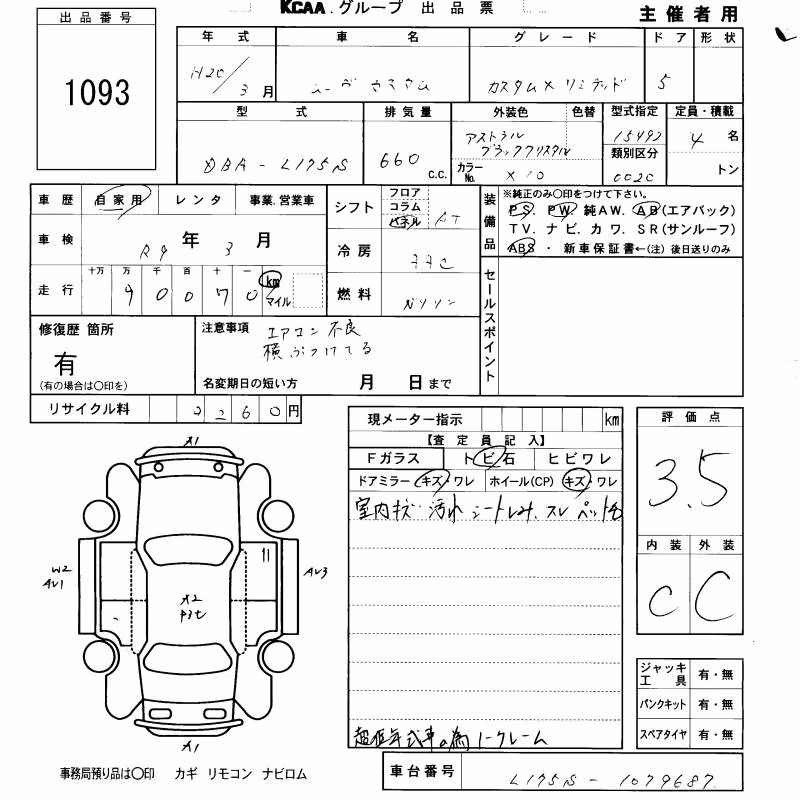 KCAA.グループ 出品票
主催者用
出品番号
1093
年式 車名 グレード ドア 形状
H20/3月 ムーヴカスタム カスタムXリミテッド 5
型式 排気量 外装色 色替 型式指定 定員・積載
DBA-L175S 660 c.c. アストラル ブラッククリスタル 15492 4名
カラーNo. X10 類別区分 0020 トン
車歴 自家用 レンタ 事業.営業車
シフト フロア コラム パネル AT
装備品 ※純正のみ○印をつけて下さい。
PS. PW. 純AW. AB(エアバック)
TV. ナビ. カワ. SR(サンルーフ)
ABS・新車保証書←(注)後日送りのみ
車検 R9年3月
冷房 AAC
走行 十万 万 千 百 十 一 km マイル
90070
燃料 ガソリン
セールスポイント
修復歴 箇所
有
(有の場合は○印を)
注意事項 エアコン不良
横ぶつけてる
名変期日の短い方 月 日まで
リサイクル料 2260円
現メーター指示 km
【査定員記入】
Fガラス トビ石 ヒビワレ
ドアミラー キズ・ワレ ホイール(CP) キズ・ワレ
室内キズ 汚れ シート スレ ペット毛
評価点
3.5
内装 外装
C C
A1
W2
AV1
AV3
A2
A1
超低年式車の為ノークレーム
ジャッキ工具 有・無
パンクキット 有・無
スペアタイヤ 有・無
事務局預り品は○印 カギ リモコン ナビロム
車台番号 L175S-1079687